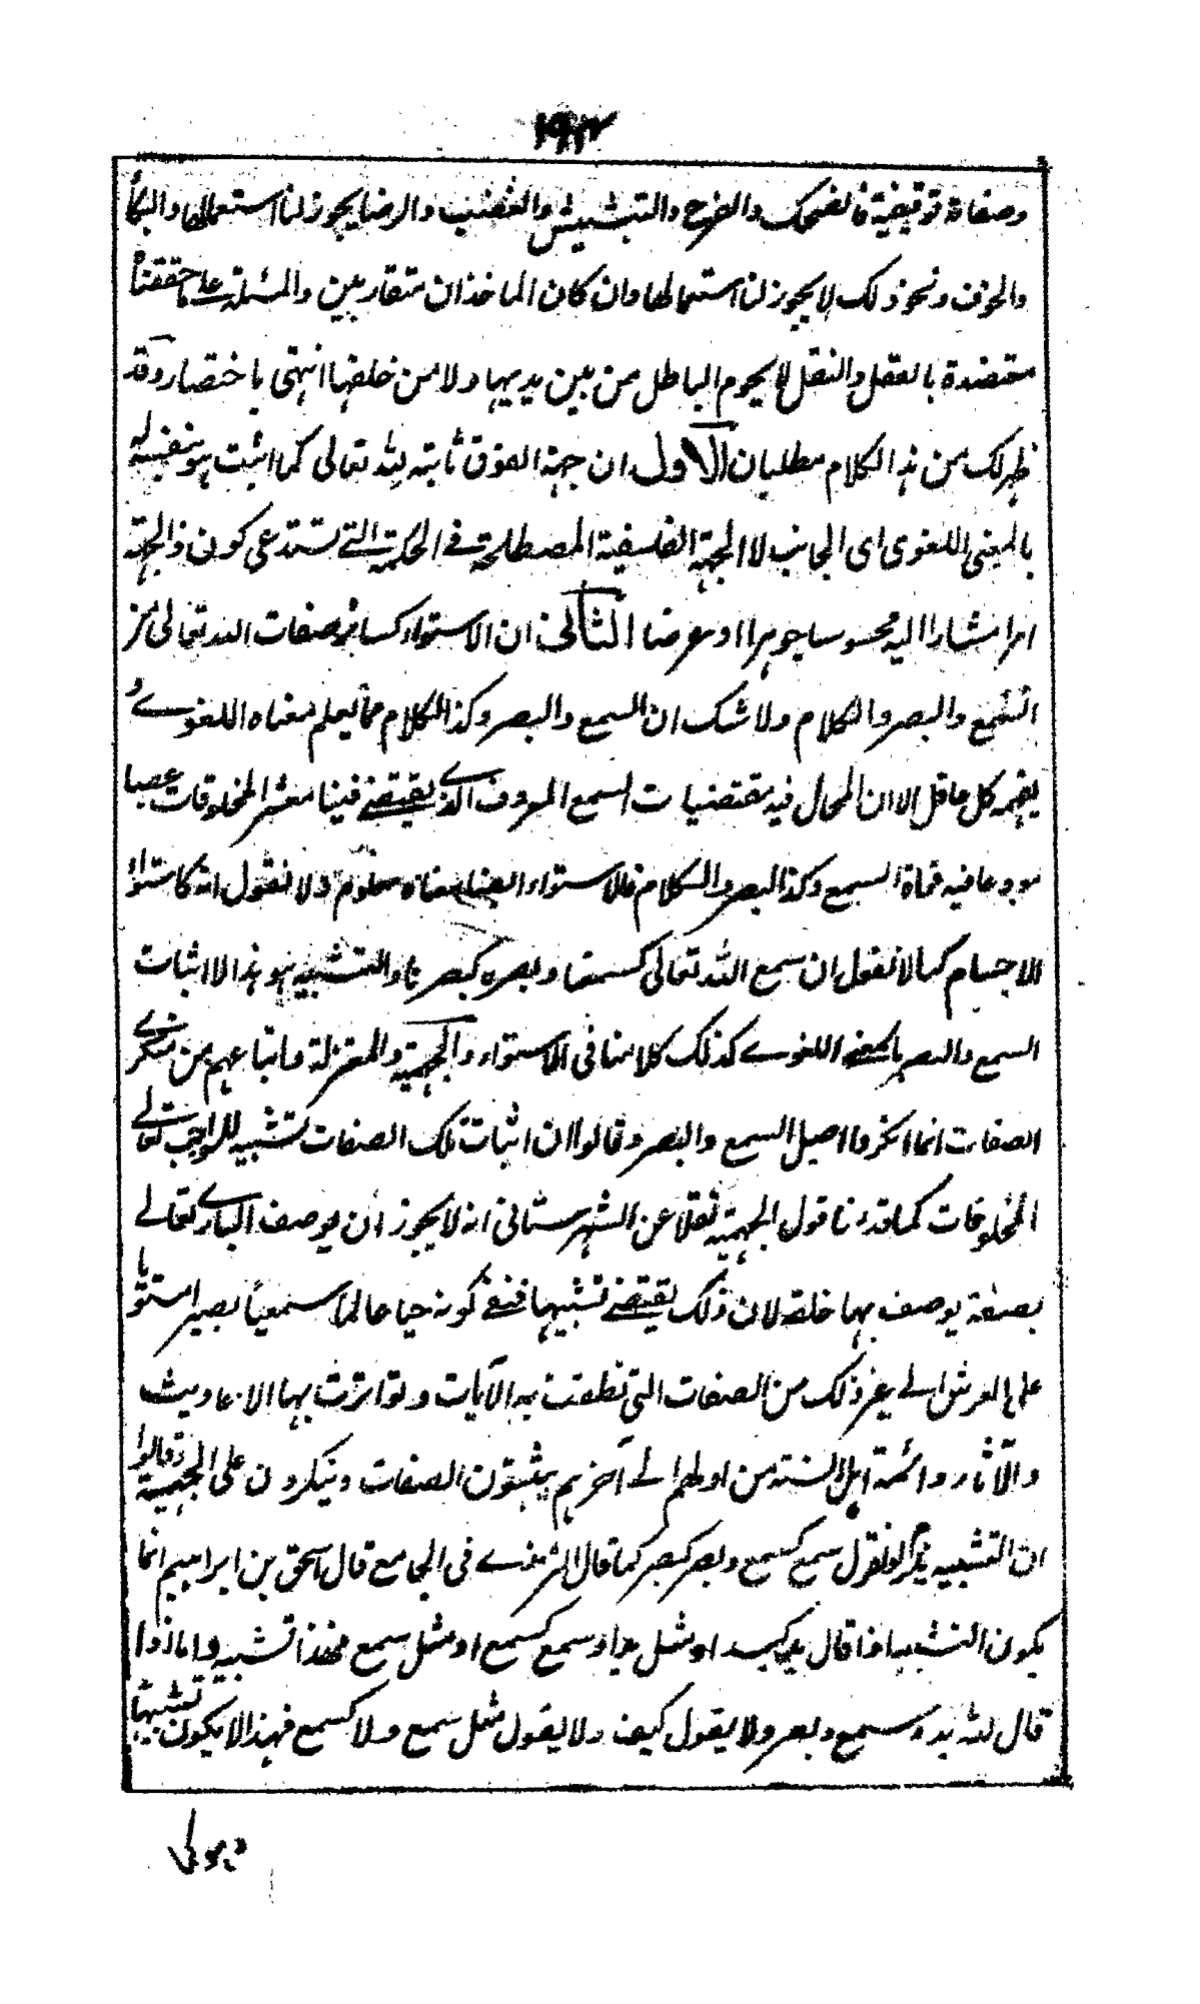 ١٩٣
وصفاته توقيفية فالضحك والفرح والتبشبش والغضب والرضا يجوز لنا استعمالها والبكاء
والخوف ونحو ذلك لا يجوز لنا استعمالها وان كان الماخذان متقاربين والمسئلة على ما حققناه
معتضدة بالعقل والنقل لا يحوم الباطل من بين يديها ولا من خلفها انتهى باختصار وقد
ظهر لك من هذا الكلام مطلبان الاول ان جهة الفوق ثابتة لله تعالى كما اثبت هو لنفسه
بالمعنى اللغوى اى الجانب لا الجهة الفلسفية المصطلحة فى الحكمة التى تستدعى كون ذا الجهة
امرا مشارا اليه محسوسا جوهرا او عرضا الثانى ان الاستواء كسائر صفات الله تعالى من
السمع والبصر والكلام ولا شك ان السمع والبصر وكذا الكلام مما يعلم معناه اللغوى و
يفهمه كل عاقل الا ان المحال فيه مقتضيات السمع المعروف الذى يقتضى فينا معشر المخلوقات عصبا
موجودا فيه قوة السمع وكذا البصر والكلام فالاستواء ايضا معناه معلوم ولا نقول انه كاستواء
الاجسام كما لا نقول ان سمع الله تعالى كسمعنا وبصره كبصرنا والتشبيه هو هذا لا اثبات
السمع والبصر بالمعنى اللغوى كذلك كلامنا فى الاستواء والجهمية والمعتزلة واتباعهم من منكرى
الصفات انما انكروا اصل السمع والبصر وقالوا ان اثبات تلك الصفات تشبيه للواجب تعالى
المخلوقات كما قدمنا قول الجهمية نقلا عن الشهرستانى انه لا يجوز ان يوصف البارى تعالى
بصفة يوصف بها خلقه لان ذلك يقتضى تشبيها فنفى كونه حيا عالما سميعا بصيرا مستويا
على العرش الى غير ذلك من الصفات التى نطقت به الآيات وتواترت بها الاحاديث
والآثار وائمة اهل السنة من اولهم الى آخرهم يثبتون الصفات وينكرون على الجهمية وقالوا
ان التشبيه يلزم لو نقول سمع كسمع وبصر كبصر كما قال الترمذى فى الجامع قال اسحق بن ابراهيم انما
يكون التشبيه اذا قال يد كيد او مثل يد او سمع كسمع او مثل سمع فهذا تشبيه واما اذا
قال لله يد وسمع وبصر ولا يقول كيف ولا يقول مثل سمع ولا كسمع فهذا لا يكون تشبيها